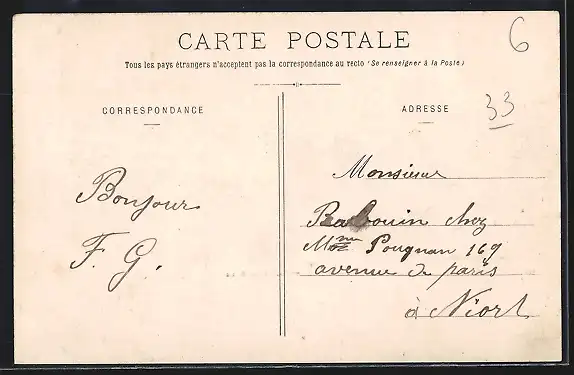 CARTE POSTALE
Tous les pays étrangers n'acceptent pas la correspondance au recto (Se renseigner à la Poste)
CORRESPONDANCE
ADRESSE
6
33
Bonjour
F. G.
Monsieur
Babouin chez
Pougnan 169
avenue de paris
à Niort